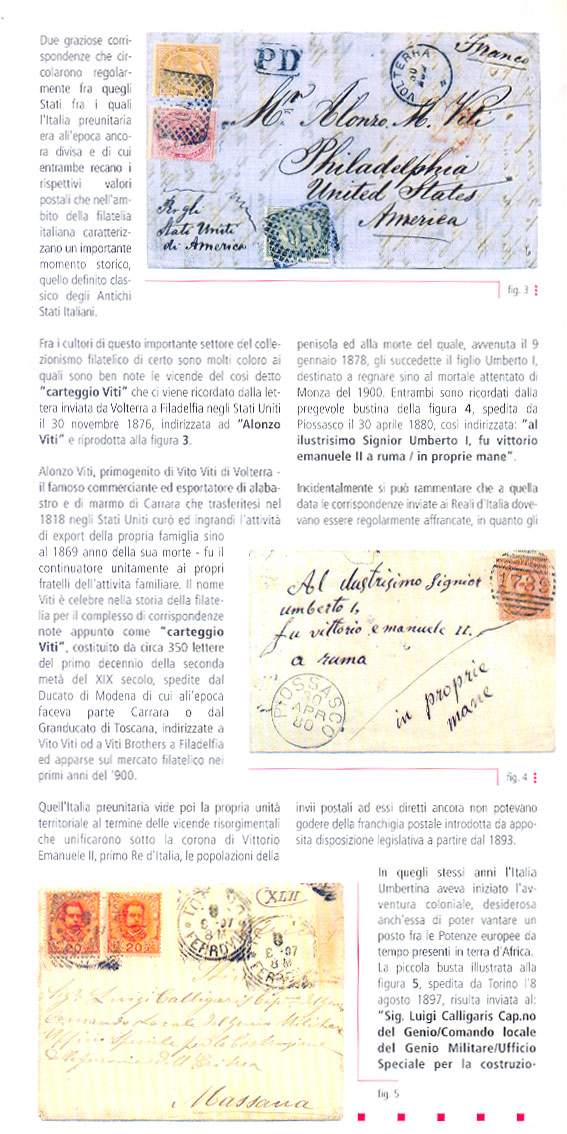 Due graziose corri-
spondenze che cir-
colarono regolar-
mente fra quegli
Stati fra i quali
l'Italia preunitaria
era all'epoca anco-
ra divisa e di cui
entrambe recano i
rispettivi valori
postali che nell'am-
bito della filatelia
italiana caratteriz-
zano un importante
momento storico,
quello definito clas-
sico degli Antichi
Stati Italiani.
PD
VOLTERRA
Franco
Mr. Alonzo. M. Viti
Philadelphia
United States
America
Per gli
Stati Uniti
di America
fig. 3
Fra i cultori di questo importante settore del colle-
zionismo filatelico di certo sono molti coloro ai
quali sono ben note le vicende del cosi detto
"carteggio Viti" che ci viene ricordato dalla let-
tera inviata da Volterra a Filadelfia negli Stati Uniti
il 30 novembre 1876, indirizzata ad "Alonzo
Viti" e riprodotta alla figura 3.
Alonzo Viti, primogenito di Vito Viti di Volterra -
il famoso commerciante ed esportatore di alaba-
stro e di marmo di Carrara che trasferitesi nel
1818 negli Stati Uniti curò ed ingrandì l'attività
di export della propria famiglia sino
al 1869 anno della sua morte - fu il
continuatore unitamente ai propri
fratelli dell'attivita familiare. Il nome
Viti è celebre nella storia della filate-
lia per il complesso di corrispondenze
note appunto come "carteggio
Viti", costituito da circa 350 lettere
del primo decennio della seconda
metà del XIX secolo, spedite dal
Ducato di Modena di cui all'epoca
faceva parte Carrara o dal
Granducato di Toscana, indirizzate a
Vito Viti od a Viti Brothers a Filadelfia
ed apparse sul mercato filatelico nei
primi anni del '900.
Quell'Italia preunitaria vide poi la propria unità
territoriale al termine delle vicende risorgimentali
che unificarono sotto la corona di Vittorio
Emanuele II, primo Re d'Italia, le popolazioni della
penisola ed alla morte del quale, avvenuta il 9
gennaio 1878, gli succedette il figlio Umberto I,
destinato a regnare sino al mortale attentato di
Monza del 1900. Entrambi sono ricordati dalla
pregevole bustina della figura 4, spedita da
Piossasco il 30 aprile 1880, così indirizzata: "al
ilustrisimo Signior Umberto I, fu vittorio
emanuele II a ruma / in proprie mane".
Incidentalmente si può rammentare che a quella
data le corrispondenze inviate ai Reali d'Italia dove-
vano essere regolarmente affrancate, in quanto gli
1789
Al ilustrisimo Signior
umberto I,
fu vittorio emanuele II.
a ruma
in proprie
mane
PIOSSASCO
30
APR
80
fig. 4
invii postali ad essi diretti ancora non potevano
godere della franchigia postale introdotta da appo-
sita disposizione legislativa a partire dal 1893.
XLII
8
8-97
8 M
FERROVIA
Sig. Luigi Calligaris Cap.no
Comando Locale del Genio Militare
Ufficio Speciale per la Costruzione
Massaua
fig. 5
In quegli stessi anni l'Italia
Umbertina aveva iniziato l'av-
ventura coloniale, desiderosa
anch'essa di poter vantare un
posto fra le Potenze europee da
tempo presenti in terra d'Africa.
La piccola busta illustrata alla
figura 5, spedita da Torino l'8
agosto 1897, risulta inviata al:
"Sig. Luigi Calligaris Cap.no
del Genio/Comando locale
del Genio Militare/Ufficio
Speciale per la costruzio-